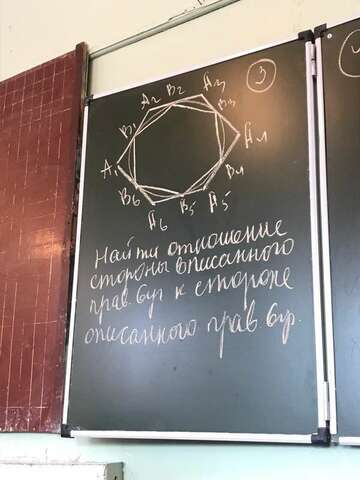 3
A₂ B₂ A₃
B₁ B₃
A₁ A₄
B₆ B₄
A₆ B₅ A₅
Найти отношение
стороны вписанного
прав. 6уг к стороне
описанного прав 6уг.